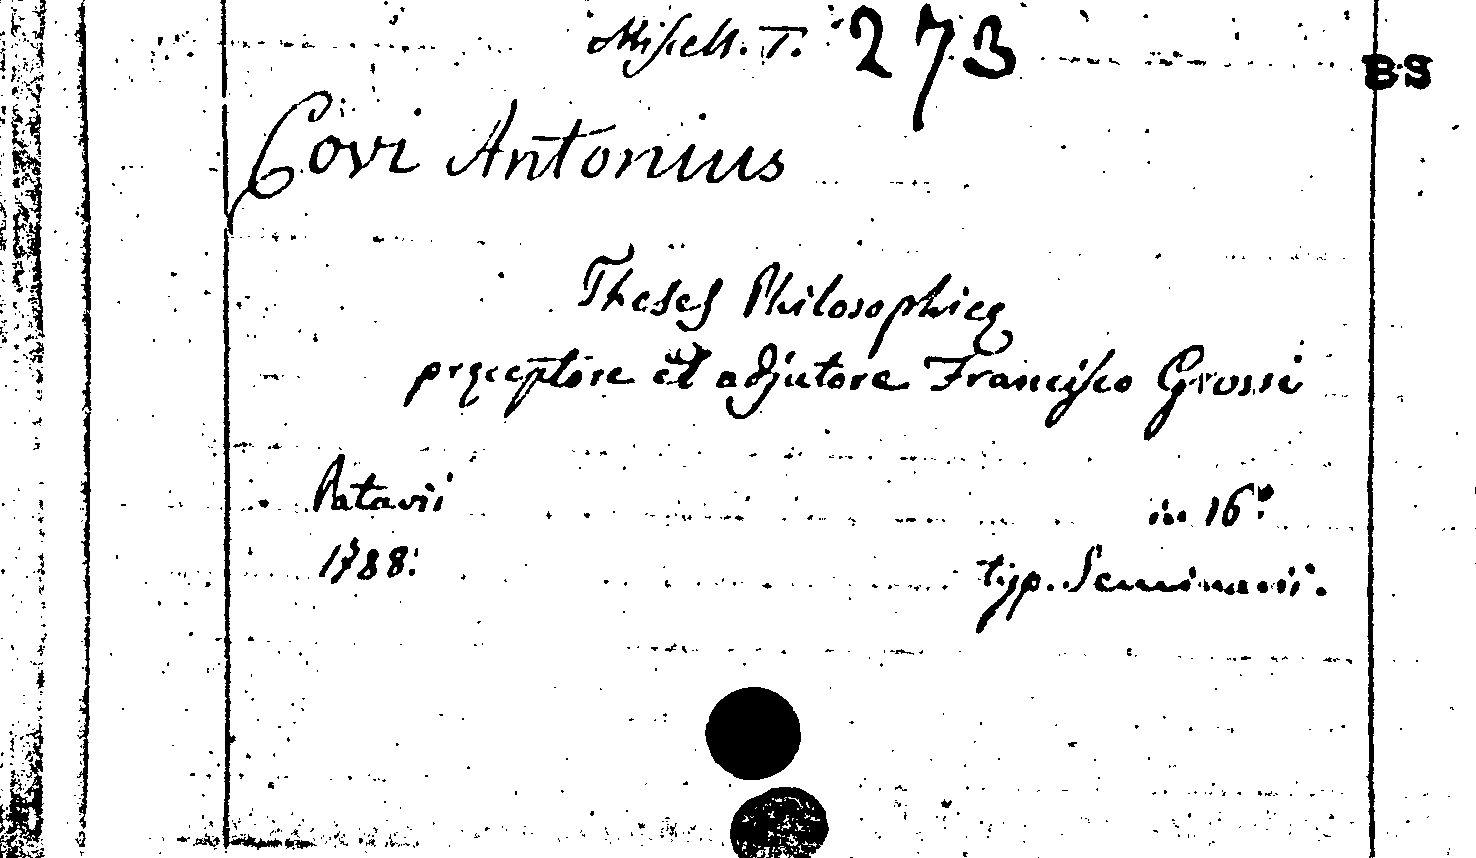 Miscell. T. 273
BS
Covi Antonius
Theses Philosophicę
pręceptore et adjutore Francisco Grossi
Patavii in 16º
1788. typ. Seminarii.